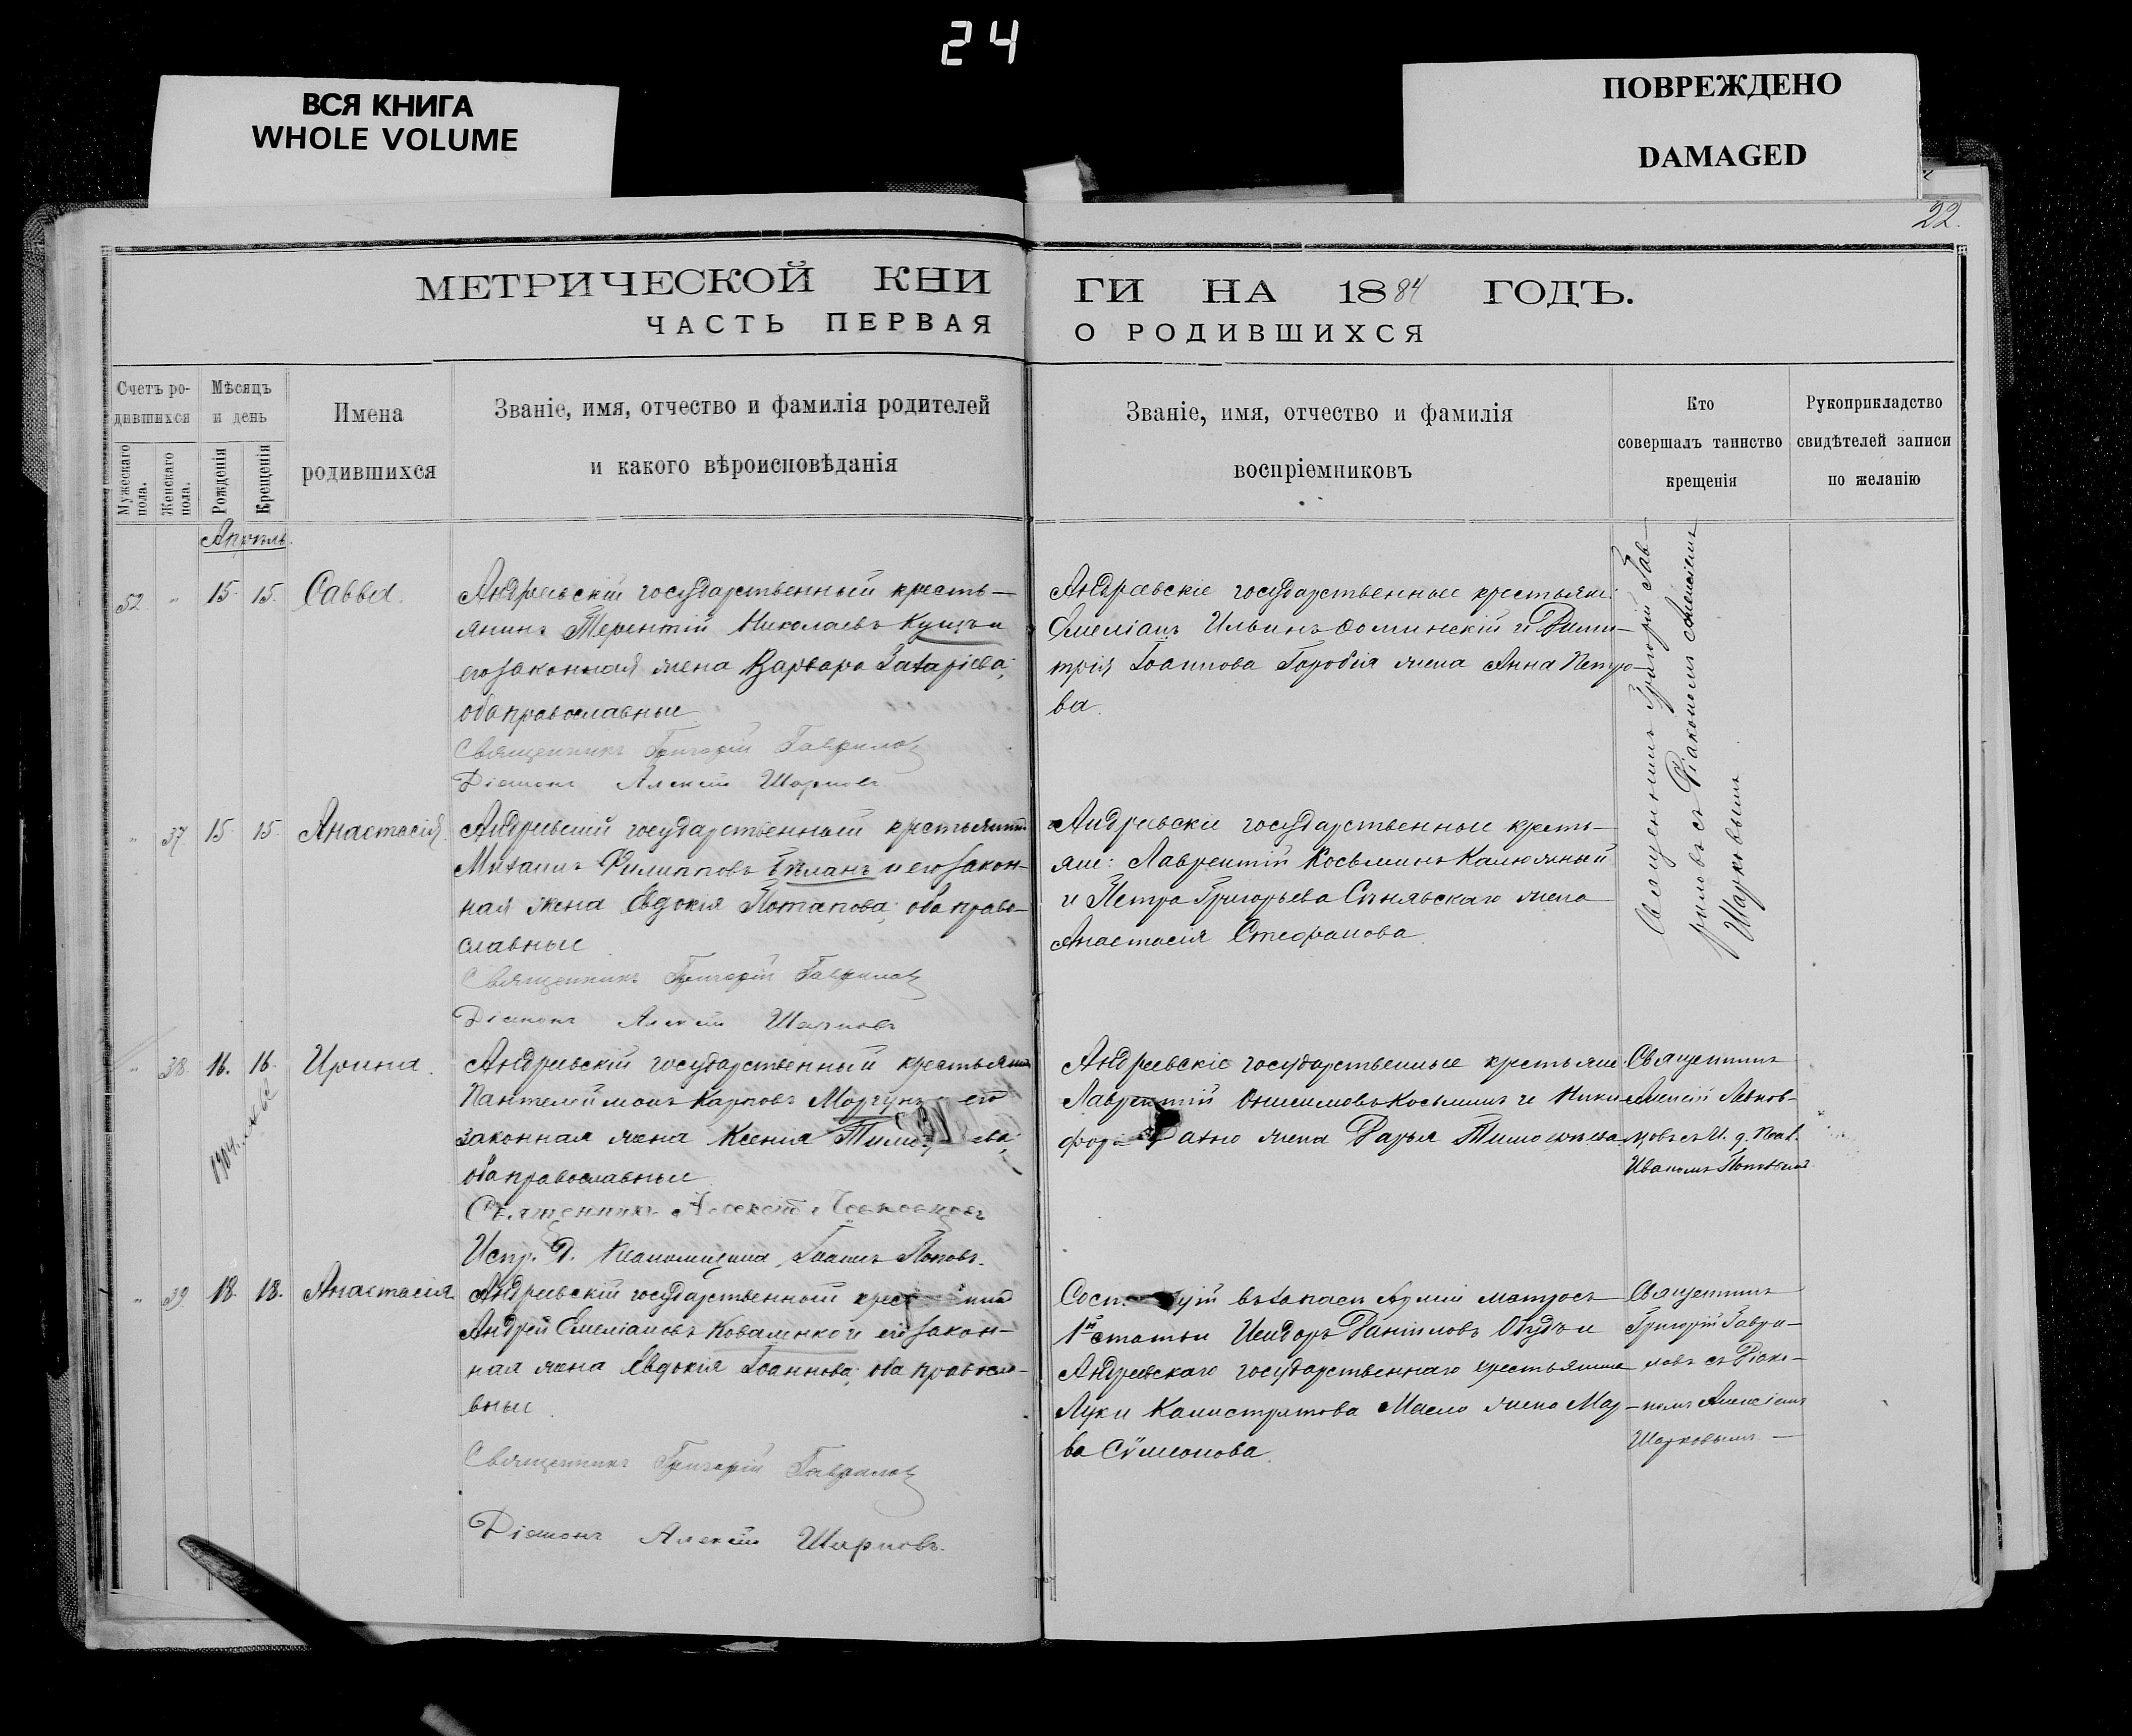 24
ВСЯ КНИГА
WHOLE VOLUME
ПОВРЕЖДЕНО
DAMAGED
22.
МЕТРИЧЕСКОЙ КНИ
ЧАСТЬ ПЕРВАЯ
ГИ НА 1884 ГОДЪ.
О РОДИВШИХСЯ
Счетъ ро-
дившихся
Мѣсяцъ
и день
Мужескаго
пола.
Женскаго
пола.
Рожденія
Крещенія
Имена
родившихся
Званіе, имя, отчество и фамилія родителей
и какого вѣроисповѣданія
Званіе, имя, отчество и фамилія
воспріемниковъ
Кто
совершалъ таинство
крещенія
Рукоприкладство
свидѣтелей записи
по желанію
Апрѣль.
52. " 15. 15. Савва.
Андреевскій государственный кресть-
янинъ Терентій Николаевъ Куцъ и
его законная жена Варвара Захаріева;
оба православные
Священникъ Григорій Гавриловъ
Діаконъ Алексій Шарковъ
Андреевскіе государственные крестьяне:
Емеліанъ Ильинъ и Дими-
трія Іоаннова жена Анна Петро-
ва.
Священникъ Григорій Гав-
риловъ съ Діакономъ Алексіемъ
Шарковымъ
" 37. 15. 15. Анастасія
Андреевскій государственный крестьянинъ
Михаилъ Филипповъ Бѣланъ и его закон-
ная жена Евдокія Потапова; оба право-
славные
Священникъ Григорій Гавриловъ
Діаконъ Алексій Шарковъ
Андреевскіе государственные кресть-
яне: Лаврентій Косьминъ Калюжный
и Петра Григорьева жена
Анастасія Стефанова
" 38. 16. 16. Ирина.
1904.
Андреевскій государственный крестьянинъ
Пантелеймонъ Карповъ Моргунъ и его
законная жена Ксенія
оба православные
Священникъ Алексій Левковцовъ
Испр. д. Іоаннъ Поповъ.
Андреевскіе государственные крестьяне
Лаврентій Онисимовъ Косьминъ и Ники-
жена Дарья
Священникъ
Алексій Левков-
цовъ съ И. д. Псал.
Иваномъ Поповымъ
" 39. 18. 18. Анастасія
Андреевскій государственный
Андрей Емеліановъ Коваленко и его закон-
ная жена Евдокія Іоаннова; оба правосла-
вные
Священникъ Григорій Гавриловъ
Діаконъ Алексій Шарковъ.
въ запасѣ Арміи матросъ
1й статьи Исидоръ Даниловъ и
Андреевскаго государственнаго крестьянина
Луки Калистратова Масло жена Мар-
ва Сѵмеонова.
Священникъ
Григорій Гаври-
ловъ съ Діако-
номъ Алексіемъ
Шарковымъ